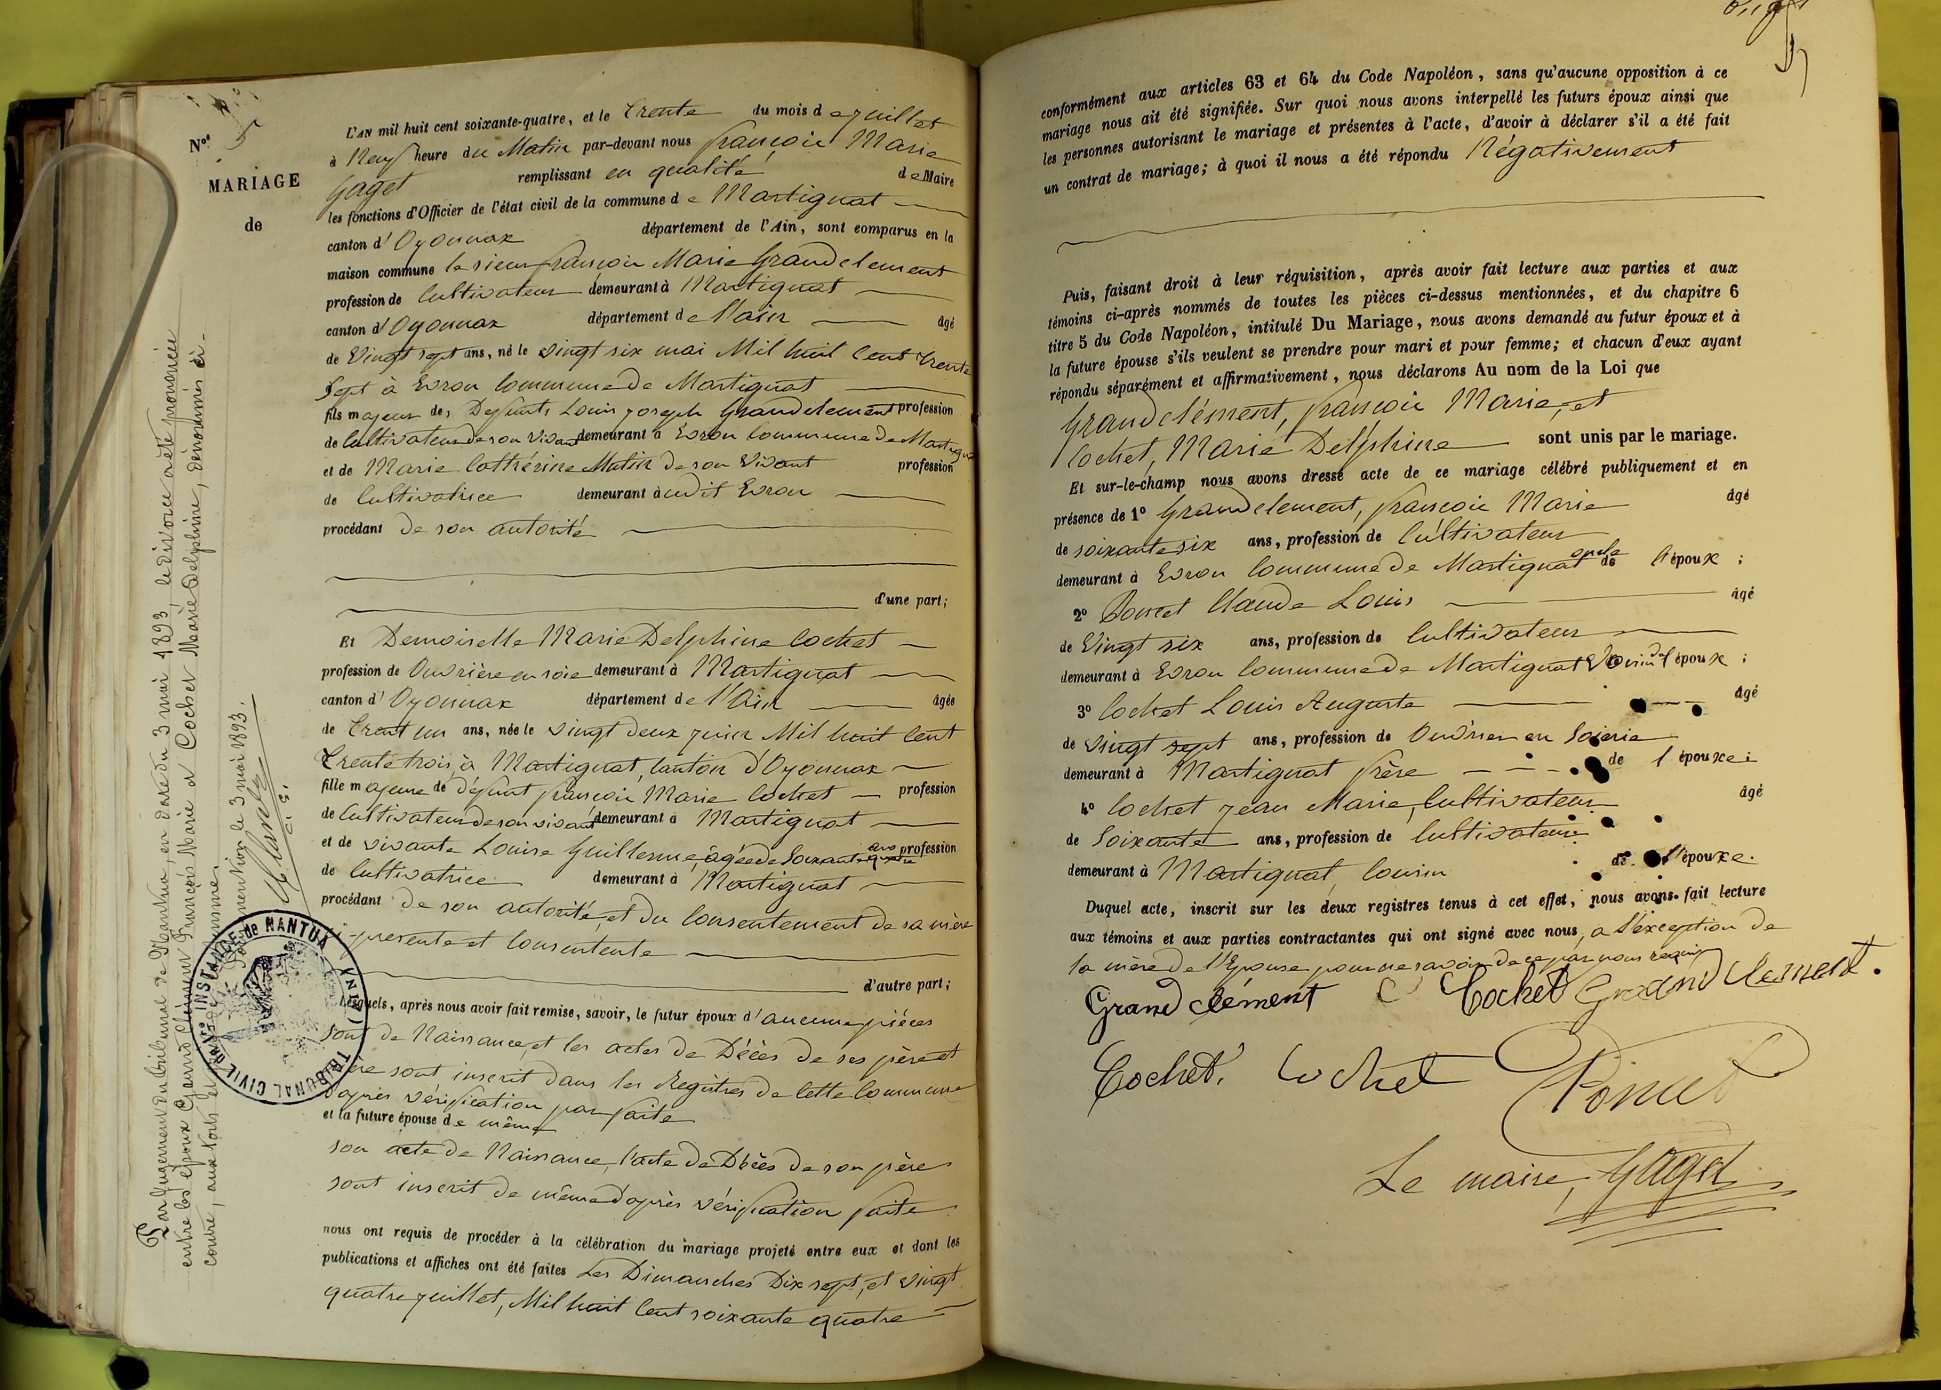 Nos. 5
MARIAGE
de
L'AN mil huit cent soixante-quatre, et le trente du mois de juillet
à Neuf heure du Matin par-devant nous françois Marie
Gaget remplissant en qualité de Maire
les fonctions d'Officier de l'état civil de la commune de Martignat
canton d'Oyonnax département de l'Ain, sont comparus en la
maison commune le sieur françois Marie Grandclement
profession de Cultivateur demeurant à Martignat
canton d'Oyonnax département de l'ain âgé
de Vingt sept ans, né le vingt six mai Mil huit Cent trente
Sept à Evron Commune de Martignat
fils majeur des Defunts Louis joseph Grandclement profession
de Cultivateur de son vivant demeurant à Evron Commune de Martignat
et de Marie Cathérine Matin de son Vivant profession
de Cultivatrice demeurant à udit Evron
procédant de son autorité
d'une part;
Et Demoiselle Marie Delphine Cochet
profession de Ouvrière en soie demeurant à Martignat
canton d'Oyonnax département de l'Ain âgée
de trent un ans, née le vingt deux juin Mil huit Cent
trente trois, à Martignat, Canton d'Oyonnax
fille majeure de défunt françois Marie Cochet profession
de Cultivateur de son vivant demeurant à Martignat
et de vivante Louise Guillerme, âgée de Soixante quatre ans profession
de Cultivatrice demeurant à Martignat
procédant de son autorité, et du Consentement de sa mère
ci-présente et Consentente
d'autre part;
Lesquels, après nous avoir fait remise, savoir, le futur époux d'aucune pièces
son de Naissance, et les actes de Décès de ses père et
mère sont inscrit dans les Regitres de Cette Commune
d'après vérification par faite
et la future épouse de même
son acte de Naissance, l'acte de Décès de son père
sont inscrit de même d'après vérification faite
nous ont requis de procéder à la célébration du mariage projeté entre eux et dont les
publications et affiches ont été faites Les Dimanches Dix sept, et vingt
quatre juillet, Mil huit Cent soixante quatre
Par jugement du tribunal de Nantua, en date du 3 mai 1893 le divorce a été prononcé
entre les époux Grand Clément François Marie et Cochet Marie Delphine, dénommés ci-
contre, aux torts et
mention le 3 mai 1893.
TRIBUNAL CIVIL DE 1re INSTANCE de NANTUA (AIN)
conformément aux articles 63 et 64 du Code Napoléon, sans qu'aucune opposition à ce
mariage nous ait été signifiée. Sur quoi nous avons interpellé les futurs époux ainsi que
les personnes autorisant le mariage et présentes à l'acte, d'avoir à déclarer s'il a été fait
un contrat de mariage; à quoi il nous a été répondu Négativement
Puis, faisant droit à leur réquisition, après avoir fait lecture aux parties et aux
témoins ci-après nommés de toutes les pièces ci-dessus mentionnées, et du chapitre 6
titre 5 du Code Napoléon, intitulé Du Mariage, nous avons demandé au futur époux et à
la future épouse s'ils veulent se prendre pour mari et pour femme; et chacun d'eux ayant
répondu séparément et affirmativement, nous déclarons Au nom de la Loi que
Grandclément, françois Marie, et
Cochet, Marie Delphine sont unis par le mariage.
Et sur-le-champ nous avons dressé acte de ce mariage célébré publiquement et en
présence de 1º Grandclement, françois Marie âgé
de soixante six ans, profession de Cultivateur
demeurant à Evron Commune de Martignat oncle de l'époux;
2º Poncet Claude Louis âgé
de Vingt six ans, profession de Cultivateur
demeurant à Evron Commune de Martignat Cousin de l'époux;
3º Cochet Louis Auguste âgé
de vingt sept ans, profession de Ouvrier en Soierie
demeurant à Martignat frère de l'épouxe;
4º Cochet jean Marie, Cultivateur âgé
de Soixante ans, profession de Cultivateur
demeurant à Martignat, Cousin de l'épouxe.
Duquel acte, inscrit sur les deux registres tenus à cet effet, nous avons fait lecture
aux témoins et aux parties contractantes qui ont signé avec nous, a l'exception de
la mère de l'Epouse pour ne savoir de ce par nous requis
Grand clément Cochet Grand Clement.
Cochet, Cochet Poncet
Le maire, Gaget